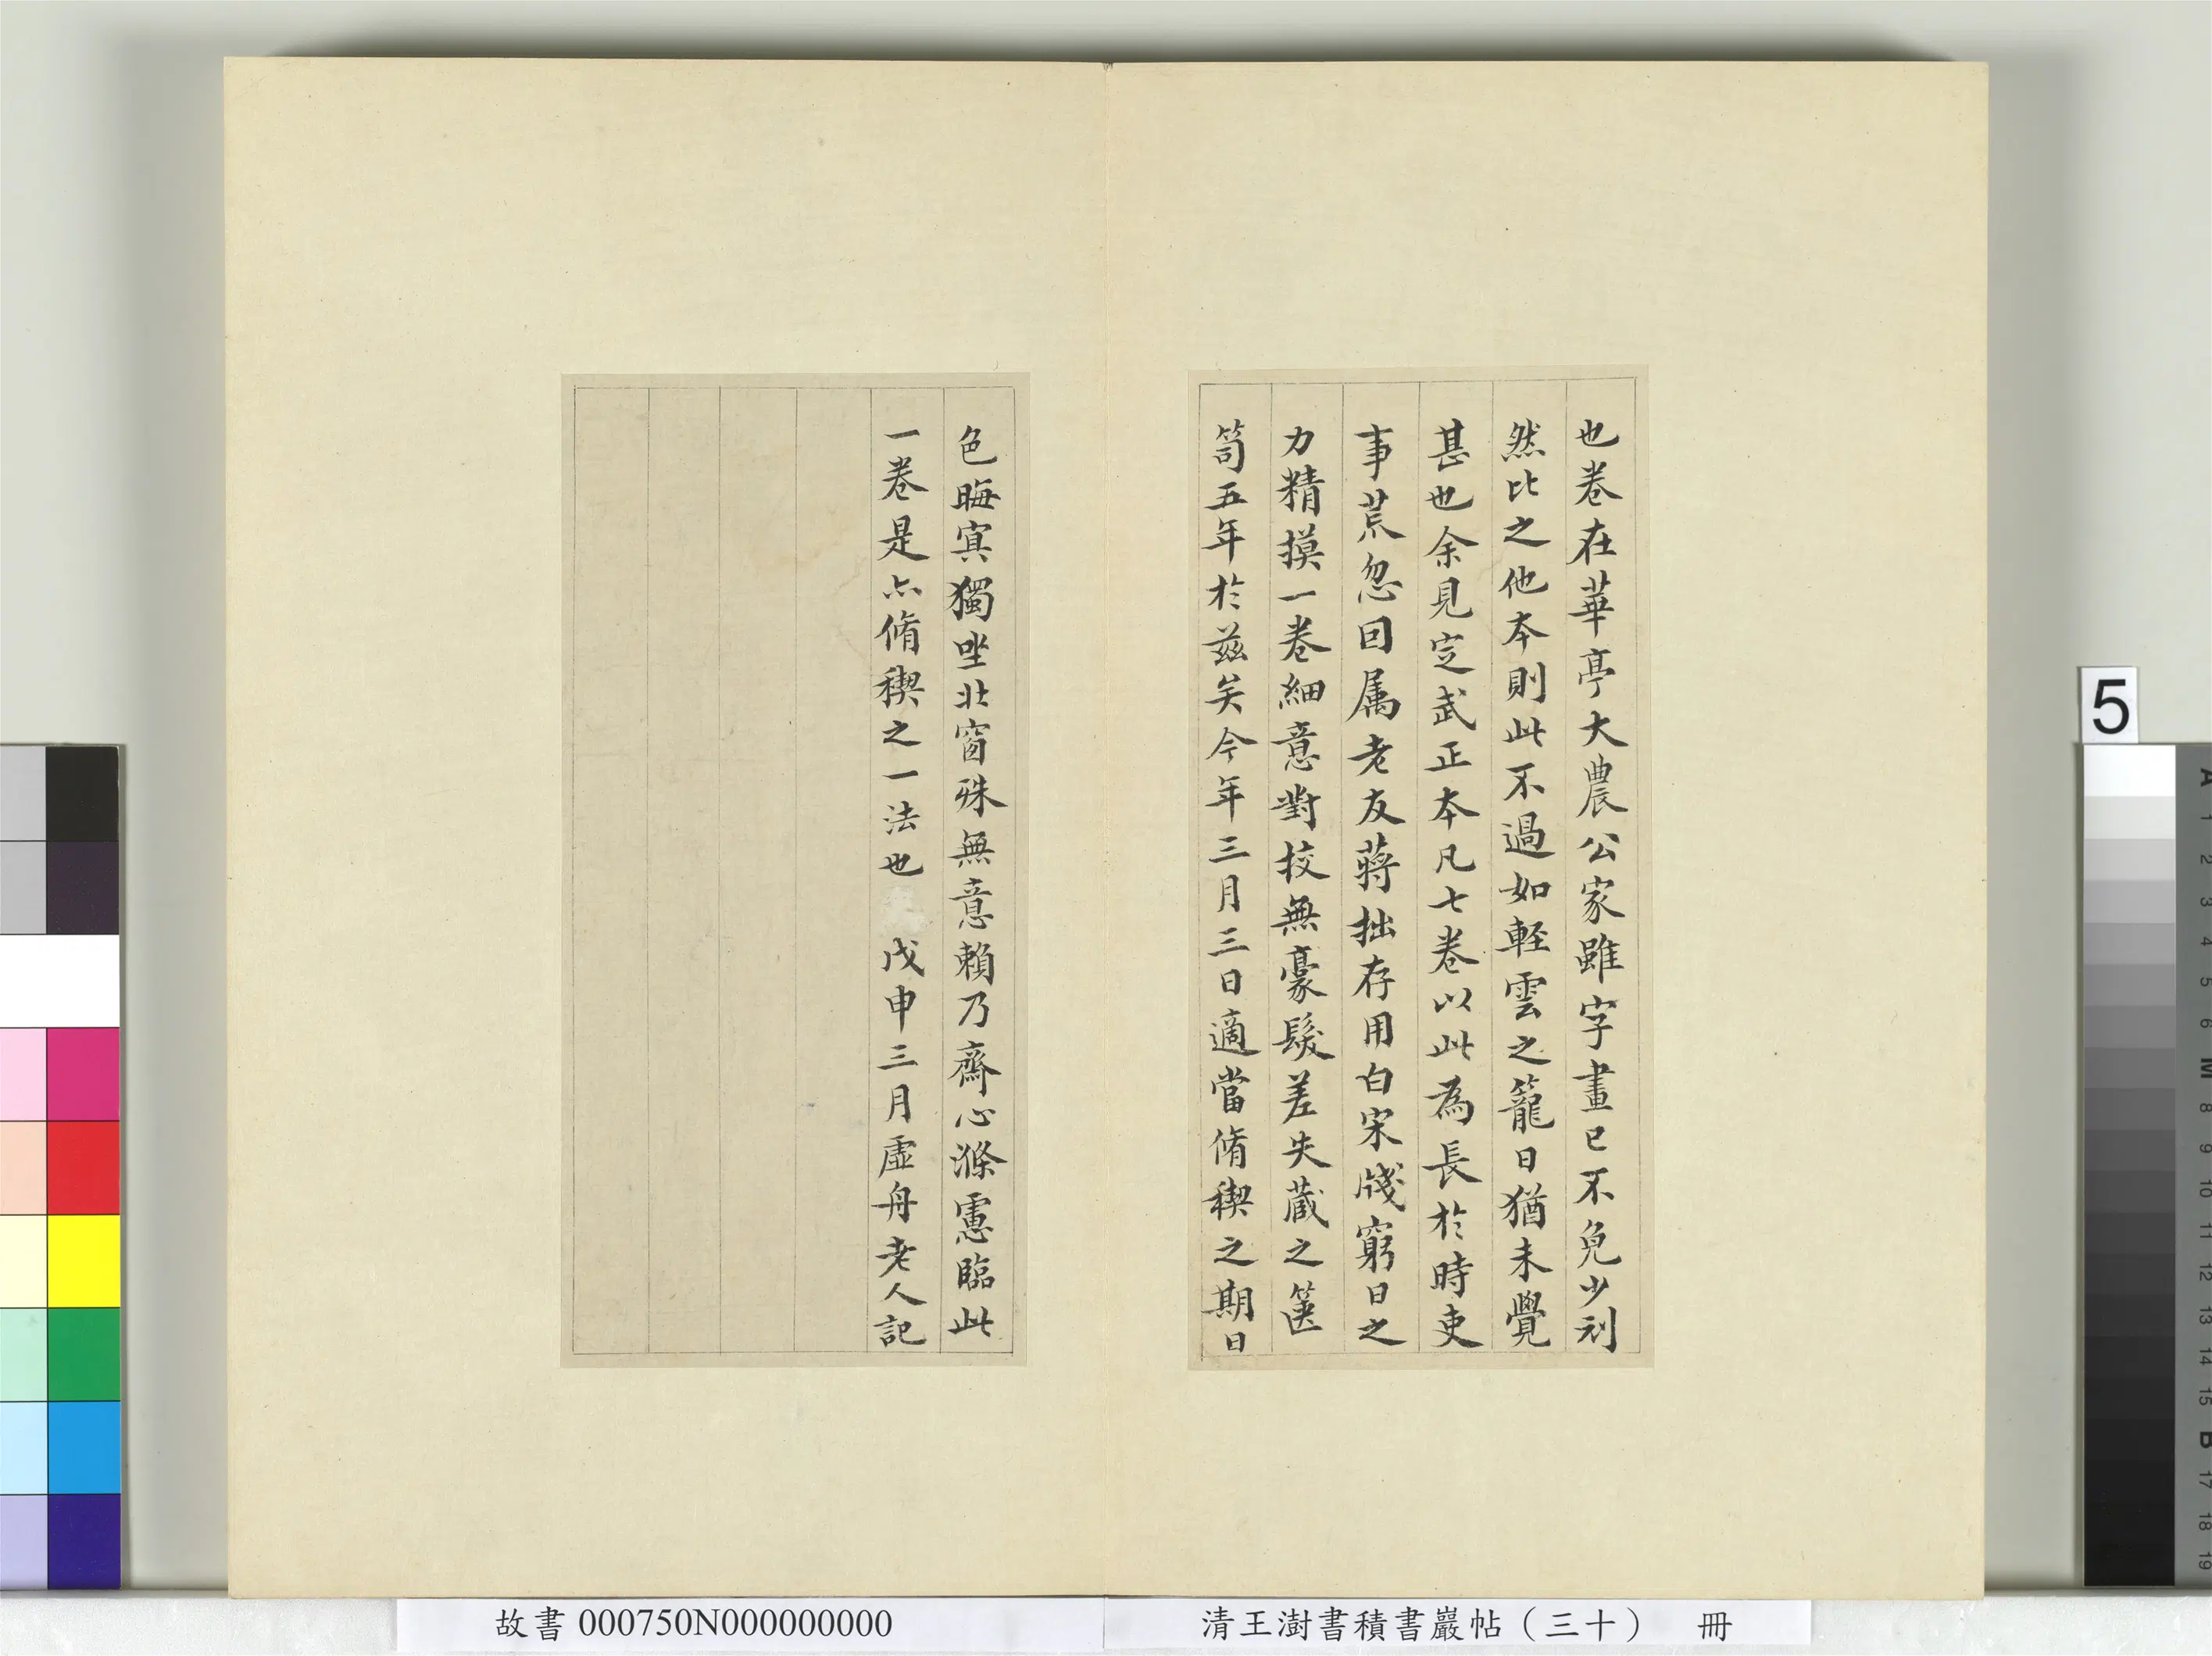 也卷在華亭大農公家雖字畫已不免少刓
然比之他本則此不過如輕雲之籠日猶未覺
甚也余見定武正本凡七卷以此為長於時吏
事荒忽回属老友蔣拙存用白宋牋窮日之
力精摸一卷細意對挍無豪髮差失蔵之篋
笥五年於茲矣今年三月三日適當脩稧之期日
色晦寘獨坐北窗殊無意賴乃齋心滌慮臨此
一卷是亦脩稧之一法也 戊申三月虛舟老人記
故書 000750N000000000
清王澍書積書巖帖（三十） 冊
5
A
1
2
3
4
5
6
M
8
9
10
11
12
13
14
15
B
17
18
19